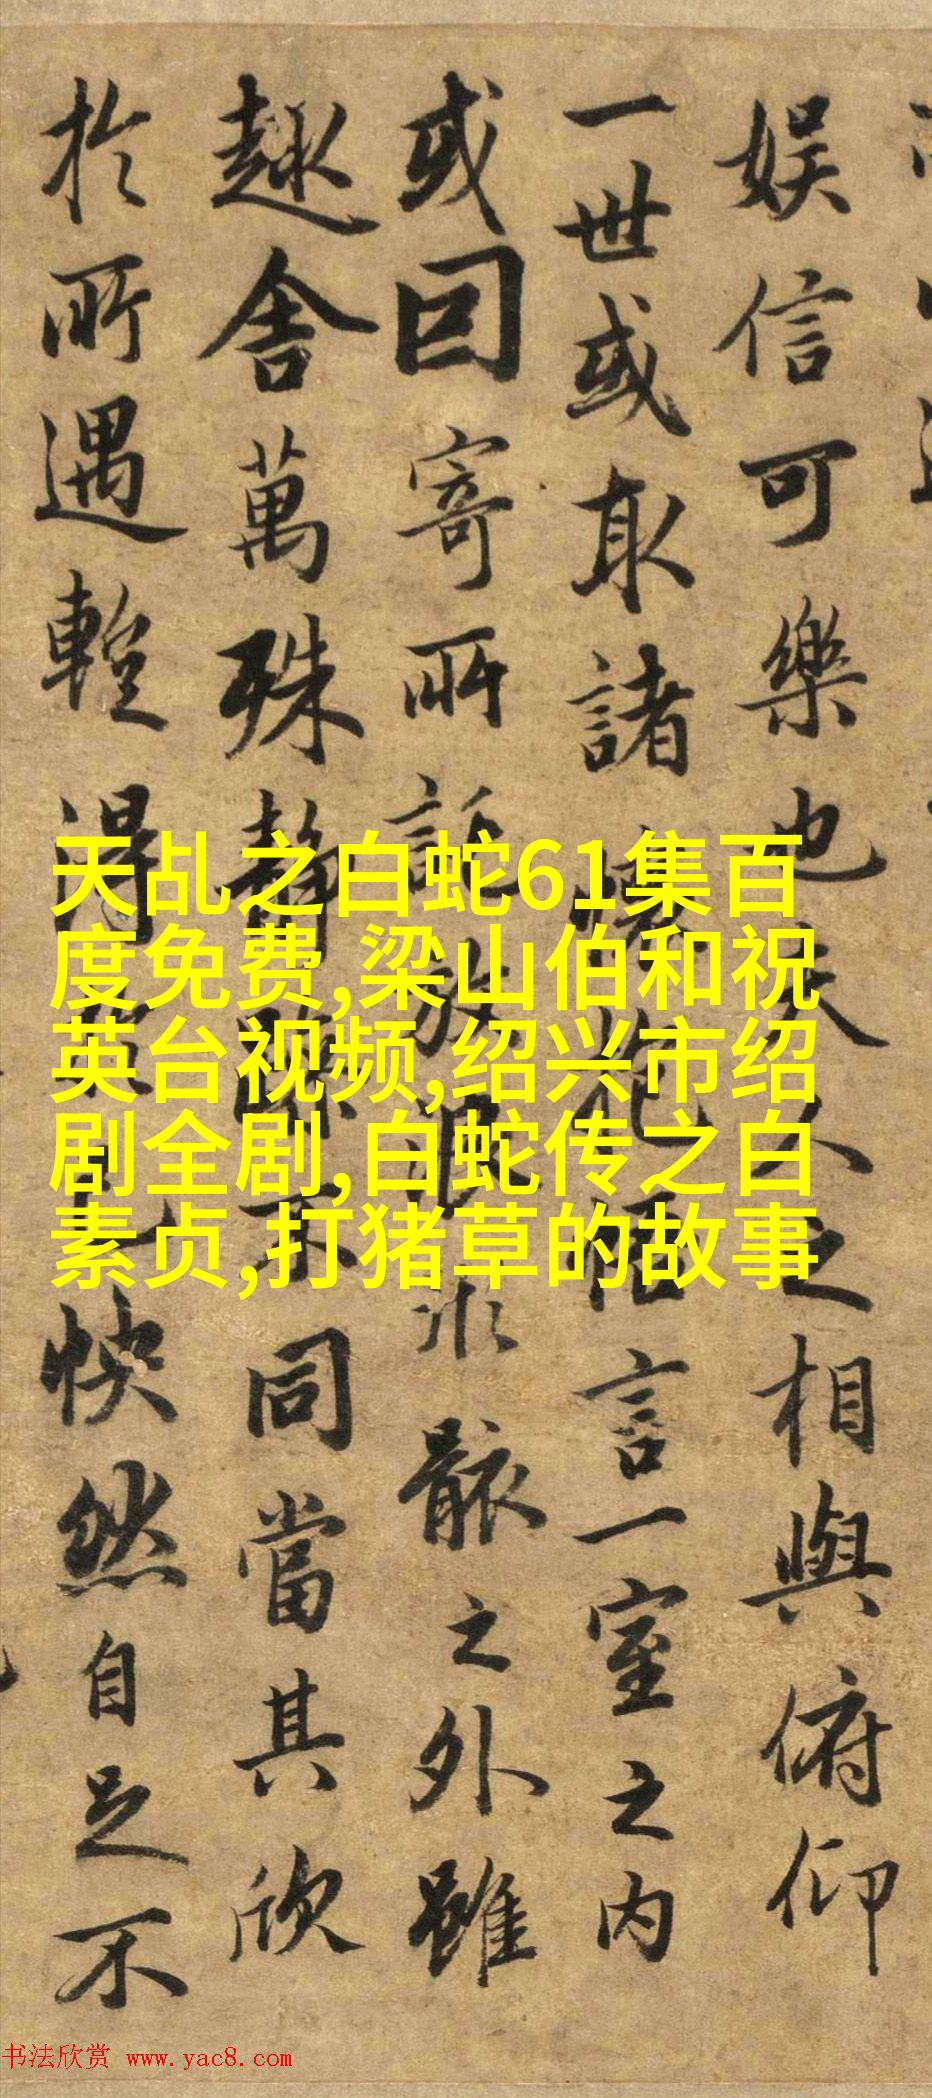 娱信可樂也夫人之相與俯仰
一世或取諸懷抱悟言一室之内
或因寄所託放浪形骸之外雖
趣舍萬殊静躁不同當其欣
於所遇暫得於己快然自足不
天乩之白蛇61集百
度免费,梁山伯和祝
英台视频,绍兴市绍
剧全剧,白蛇传之白
素贞,打猪草的故事
书法欣赏 www.yac8.com